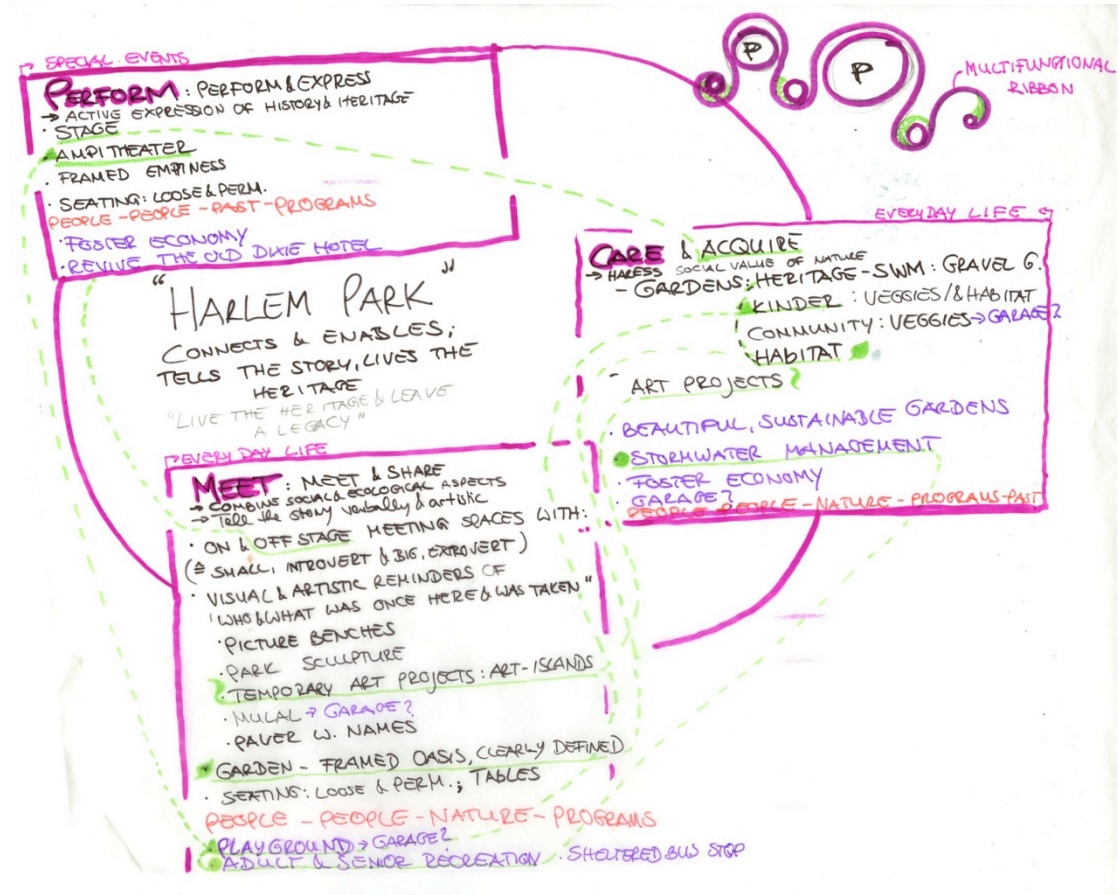 SPECIAL EVENTS
PERFORM: PERFORM & EXPRESS
→ ACTIVE EXPRESSION OF HISTORY & HERITAGE
· STAGE
· AMPITHEATER
· FRAMED EMPTINESS
· SEATING: LOOSE & PERM.
PEOPLE - PEOPLE - PAST - PROGRAMS
· FOSTER ECONOMY
· REVIVE THE OLD DIXIE HOTEL
P
P
MULTIFUNCTIONAL
RIBBON
"HARLEM PARK"
CONNECTS & ENABLES;
TELLS THE STORY, LIVES THE
HERITAGE
"LIVE THE HERITAGE & LEAVE
A LEGACY"
EVERYDAY LIFE
CARE & ACQUIRE
→ HARESS SOCIAL VALUE OF NATURE
- GARDENS: HERITAGE - SWM: GRAVEL G.
KINDER: VEGGIES/& HABITAT
COMMUNITY: VEGGIES → GARAGE?
HABITAT
- ART PROJECTS
· BEAUTIFUL, SUSTAINABLE GARDENS
· STORMWATER MANAGEMENT
· FOSTER ECONOMY
· GARAGE?
PEOPLE - PEOPLE - NATURE - PROGRAMS - PAST
EVERY DAY LIFE
MEET: MEET & SHARE
→ COMBINS SOCIAL & ECOLOGICAL ASPECTS
→ Tell the story verbally & artistic
· ON & OFF STAGE MEETING SPACES WITH:
(≙ SMALL, INTROVERT & BIG, EXTROVERT)
· VISUAL & ARTISTIC REMINDERS OF
"WHO & WHAT WAS ONCE HERE & WAS TAKEN"
· PICTURE BENCHES
· PARK SCULPTURE
· TEMPORARY ART PROJECTS: ART-ISLANDS
· MULAL → GARAGE?
· PAVER W. NAMES
· GARDEN - FRAMED OASIS, CLEARLY DEFINED
· SEATING: LOOSE & PERM.; TABLES
PEOPLE - PEOPLE - NATURE - PROGRAMS
· PLAYGROUND → GARAGE?
· ADULT & SENIOR RECREATION · SHELTERED BUS STOP